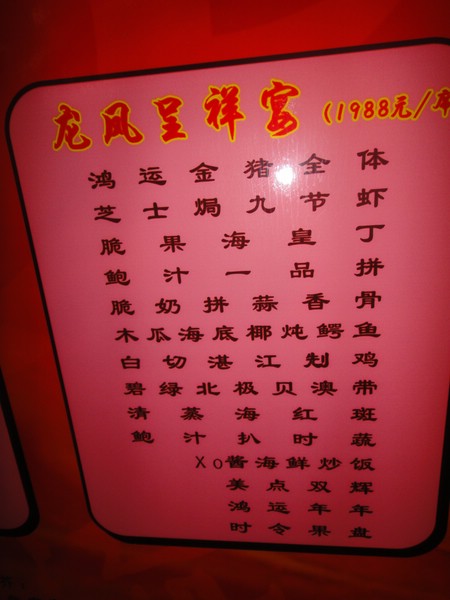 龙凤呈祥宴(1988元/
鸿运金猪全体
芝士焗九节虾
脆果海皇丁
鲍汁一品拼
脆奶拼蒜香骨
木瓜海底椰炖鳄鱼
白切湛江鸡
碧绿北极贝澳带
清蒸海红斑
鲍汁扒时蔬
XO酱海鲜炒饭
美点双辉
鸿运年年
时令果盘